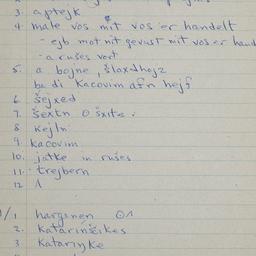 3. aptejk
4. mate vos mit vos er handelt
- ejb mot nit gevust mit vos er hand
- a rušes vort
5. a bojne, šlaxthojz
ba di kacovim afn hejf
6. šejxed
7. šextn o šxite.
8 kejln
9. kacovim
10. jatke in rušes
11. trejbern
12 1
1 hargenen
2. katarinšikes
3 katarinke